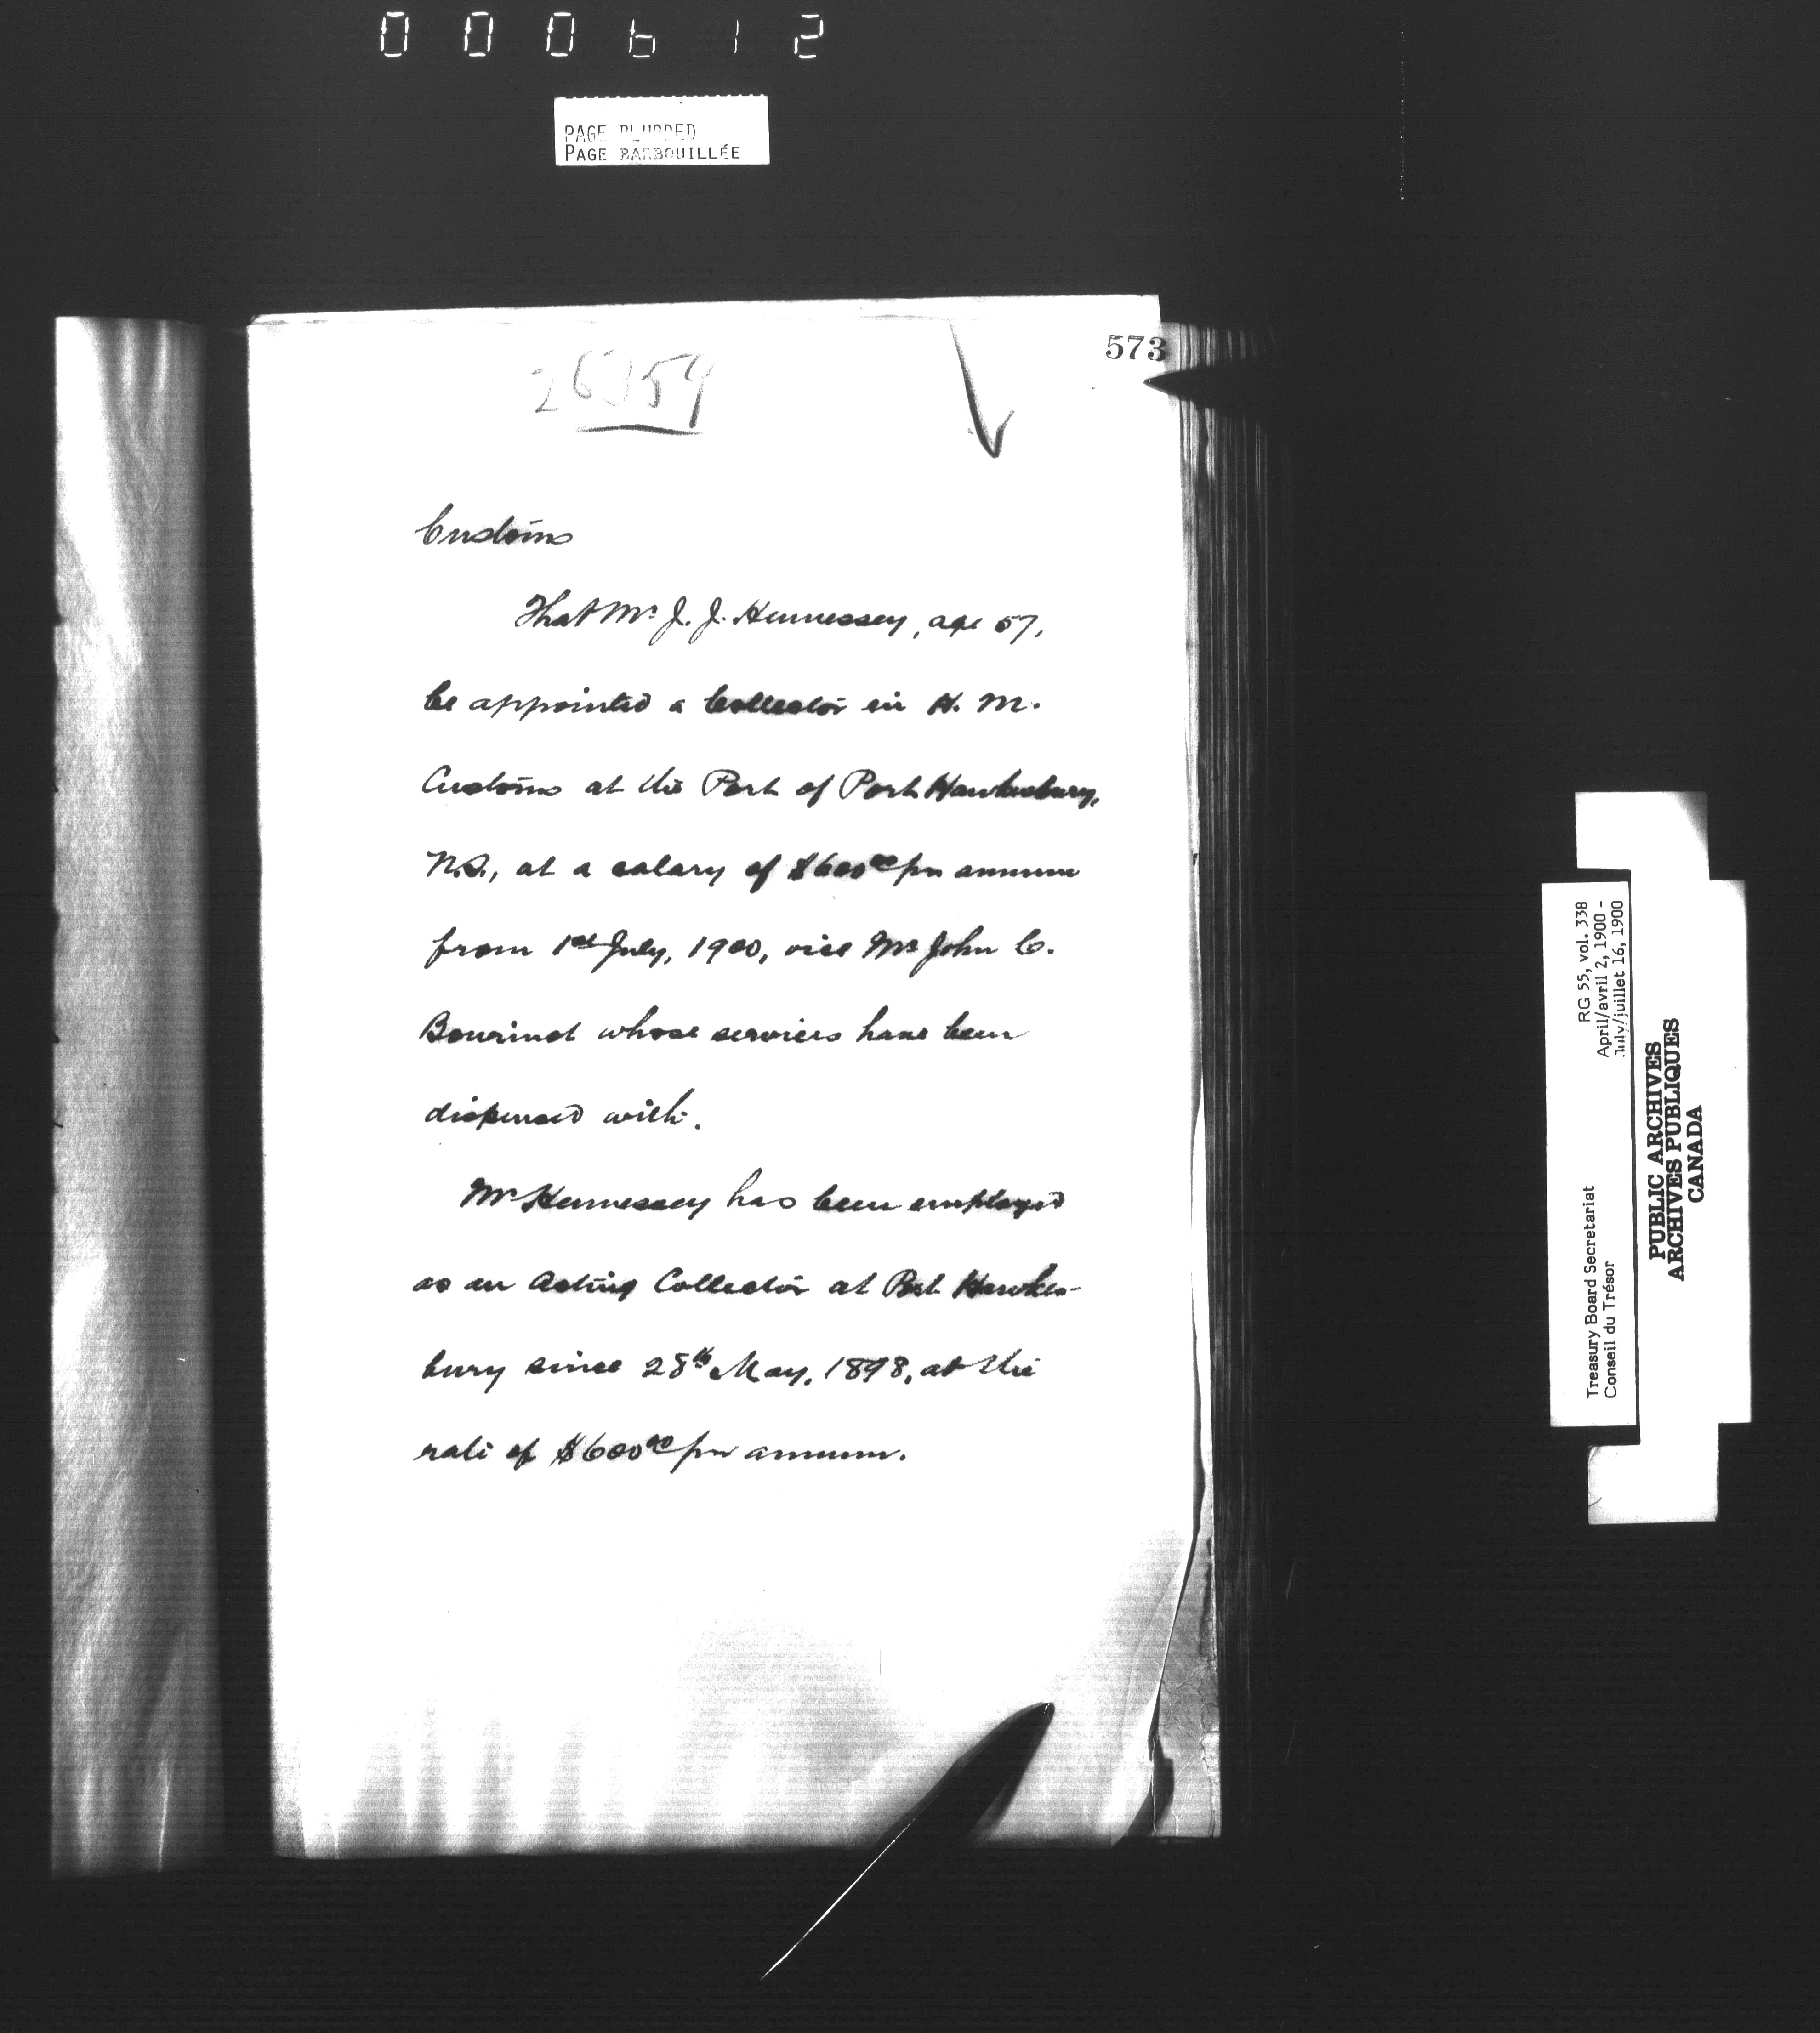 000612
PAGE BLURRED
PAGE BARBOUILLÉE
573
Customs
That Mr J. J. Hennessey, age 57,
be appointed a Collector in H. M.
Customs at the Port of Port Hawkesbury,
N.S., at a salary of $600 00 per annum
from 1st July, 1900, vice Mr John C.
Bourinot whose services have been
dispensed with.
Mr Hennessey has been employed
as an Acting Collector at Port Hawkes-
bury since 28th May, 1898, at the
rate of $600 00 per annum.
RG 55, vol. 338
April/avril 2, 1900 -
July/juillet 16, 1900
Treasury Board Secretariat
Conseil du Trésor
PUBLIC ARCHIVES
ARCHIVES PUBLIQUES
CANADA